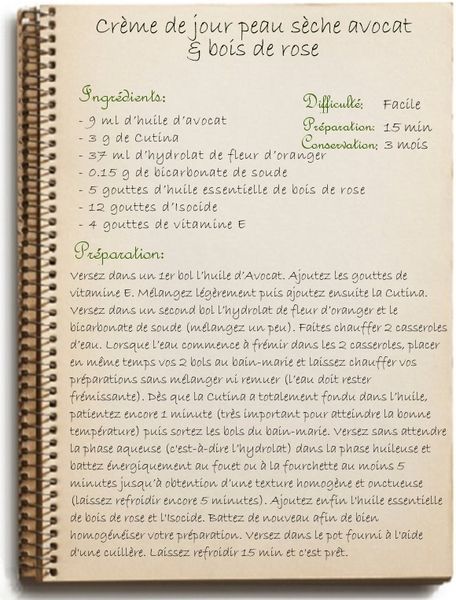 Crème de jour peau sèche avocat
& bois de rose
Ingrédients:
- 9 ml d'huile d'avocat
- 3 g de Cutina
- 37 ml d'hydrolat de fleur d'oranger
- 0.15 g de bicarbonate de soude
- 5 gouttes d'huile essentielle de bois de rose
- 12 gouttes d'Isocide
- 4 gouttes de vitamine E
Difficulté: Facile
Préparation: 15 min
Conservation: 3 mois
Préparation:
Versez dans un 1er bol l'huile d'Avocat. Ajoutez les gouttes de
vitamine E. Mélangez légèrement puis ajoutez ensuite la Cutina.
Versez dans un second bol l'hydrolat de fleur d'oranger et le
bicarbonate de soude (mélangez un peu). Faites chauffer 2 casseroles
d'eau. Lorsque l'eau commence à frémir dans les 2 casseroles, placer
en même temps vos 2 bols au bain-marie et laissez chauffer vos
préparations sans mélanger ni remuer (l'eau doit rester
frémissante). Dès que la Cutina a totalement fondu dans l'huile,
patientez encore 1 minute (très important pour atteindre la bonne
température) puis sortez les bols du bain-marie. Versez sans attendre
la phase aqueuse (c'est-à-dire l'hydrolat) dans la phase huileuse et
battez énergiquement au fouet ou à la fourchette au moins 5
minutes jusqu'à obtention d'une texture homogène et onctueuse
(laissez refroidir encore 5 minutes). Ajoutez enfin l'huile essentielle
de bois de rose et l'Isocide. Battez de nouveau afin de bien
homogénéiser votre préparation. Versez dans le pot fourni à l'aide
d'une cuillère. Laissez refroidir 15 min et c'est prêt.